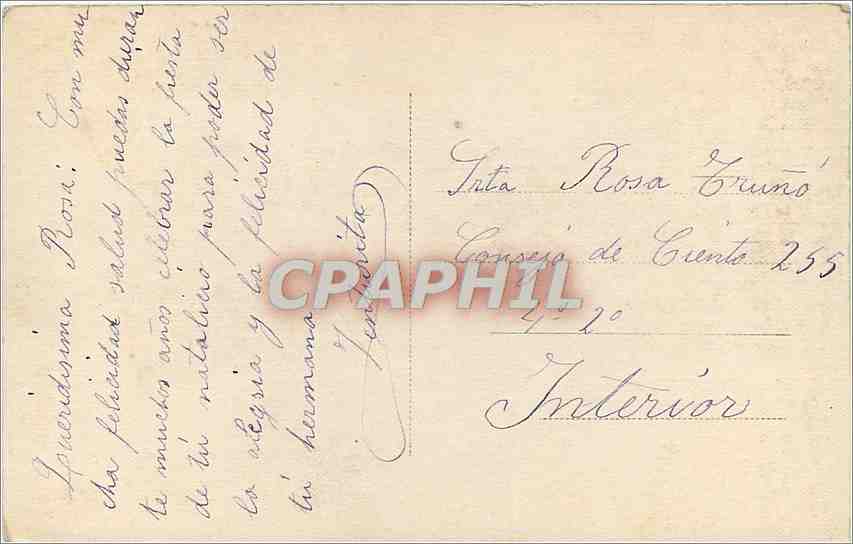 Queridisima Rosa: Con mu
cha felicidad salud puedas duran
te muchos años celebrar la fiesta
de tú natalicio para poder ser
la alegria y la felicidad de
tú hermana
Venturita
Srta Rosa Truñó
Consejo de Ciento 255
4º 2º
Interior
CPAPHIL